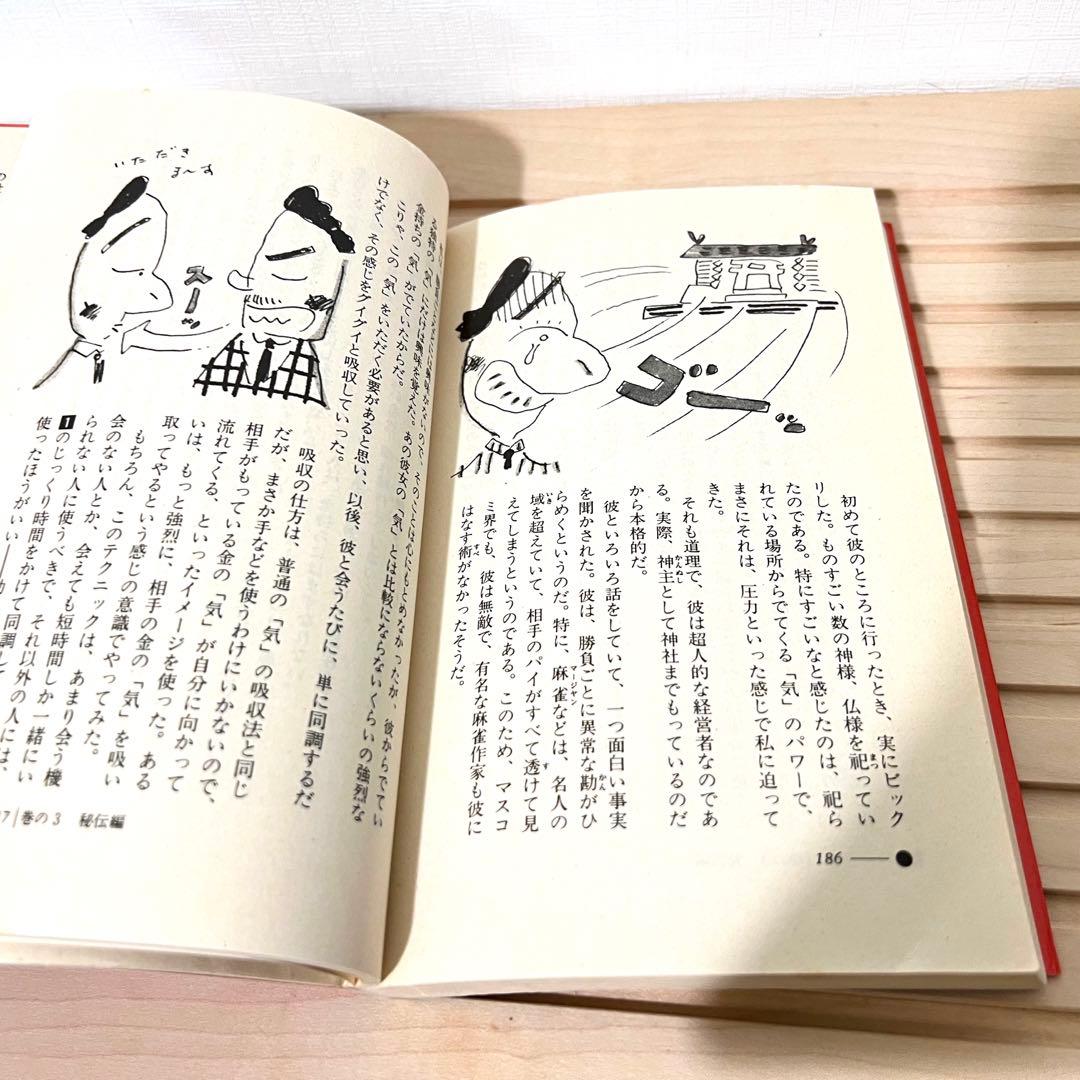 ゴーッ
初めて彼のところに行ったとき、実にビック
リした。ものすごい数の神様、仏様を祀ってい
たのである。特にすごいなと感じたのは、祀ら
れている場所からでてくる「気」のパワーで、
まさにそれは、圧力といった感じで私に迫って
きた。
それも道理で、彼は超人的な経営者なのであ
る。実際、神主として神社までもっているのだ
から本格的だ。
彼といろいろ話をしていて、一つ面白い事実
を聞かされた。彼は、勝負ごとに異常な勘がひ
らめくというのだ。特に、麻雀などは、名人の
域を超えていて、相手のパイがすべて透けて見
えてしまうというのである。このため、マスコ
ミ界でも、彼は無敵で、有名な麻雀作家も彼に
はなす術がなかったそうだ。
186
そのことは心にもとめなかったが、彼からでてい
る独特の「気」にだけは興味を覚えた。あの彼女の「気」とは比較にならないくらいの強烈な
金持ちの「気」がでていたからだ。
こりゃ、この「気」をいただく必要があると思い、以後、彼と会うたびに、単に同調するだ
けでなく、その感じをグイグイと吸収していった。
いただき
ま〜す
スーッ
吸収の仕方は、普通の「気」の吸収法と同じ
だが、まさか手などを使うわけにいかないので、
相手がもっている金の「気」が自分に向かって
流れてくる、といったイメージを使った。ある
いは、もっと強烈に、相手の金の「気」を吸い
取ってやるという感じの意識でやってみた。
もちろん、このテクニックは、あまり会う機
会のない人とか、会えても短時間しか一緒にい
られない人に使うべきで、それ以外の人には、
1のじっくり時間をかけて同調して
使ったほうがいい
巻の3 秘伝編